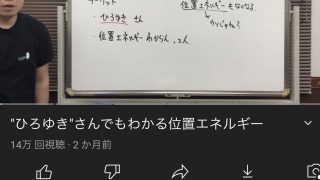 ・ひろゆき さん
・位置エネルギー わからん、2人
位置エネルギーもなくなる。
"ひろゆき"さんでもわかる位置エネルギー
14万 回視聴・2 か月前